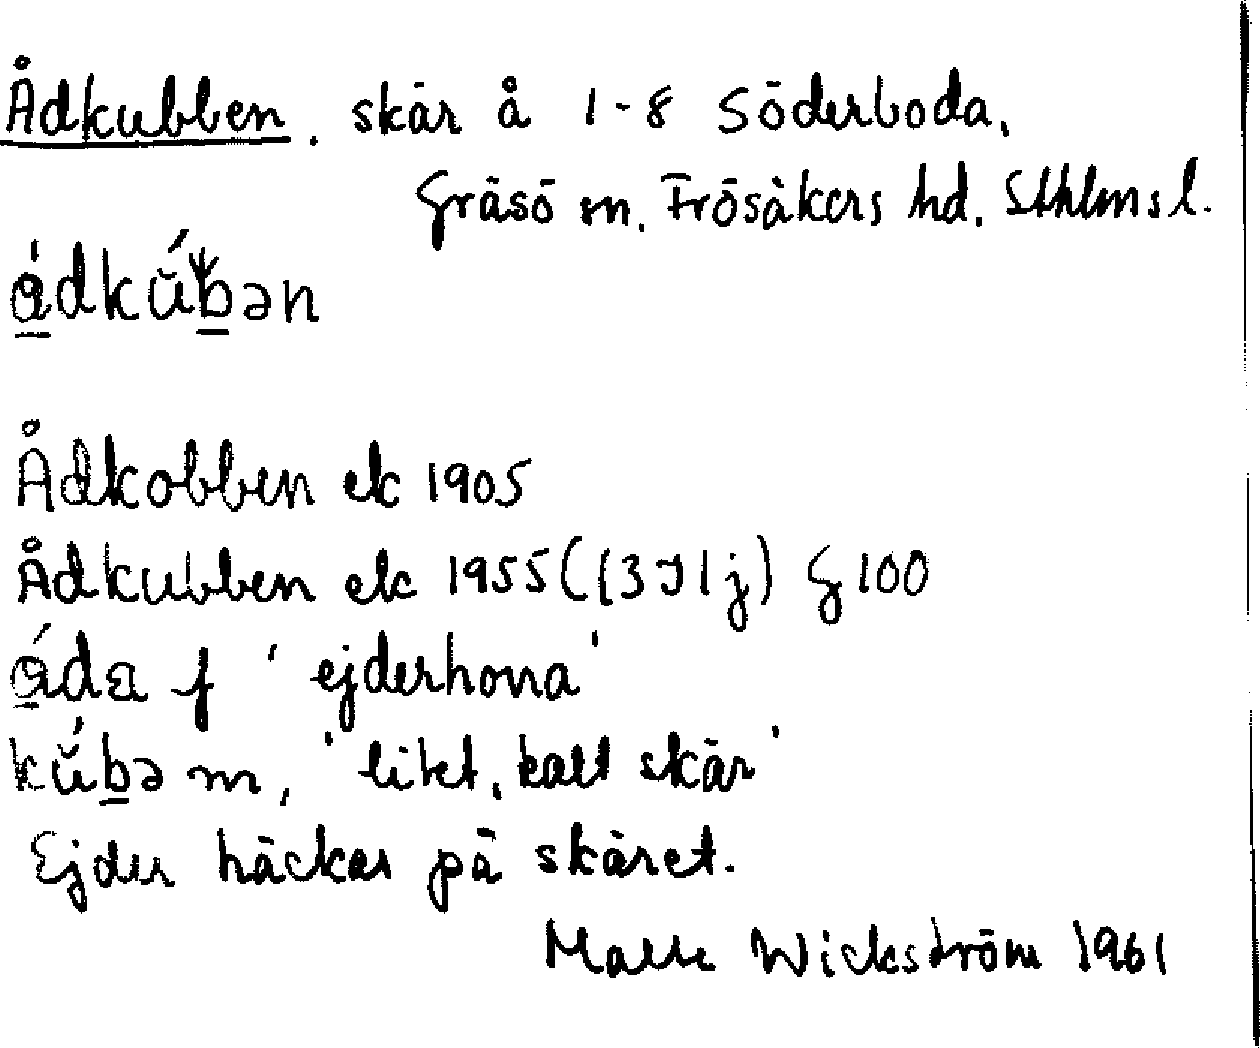 Ådkubben. skär å 1-8 Söderboda,
Gräsö sn. Frösåkers hd. Sthlms l.
ǻ̱dkŭ́ḇən
Ådkobben ek 1905
Ådkubben ek 1955 (13I1j) G 100
ǻ̱da f 'ejderhona'
kŭ́ḇə m, 'litet, kalt skär'
Ejder häckar på skäret.
Malle Wickström 1961